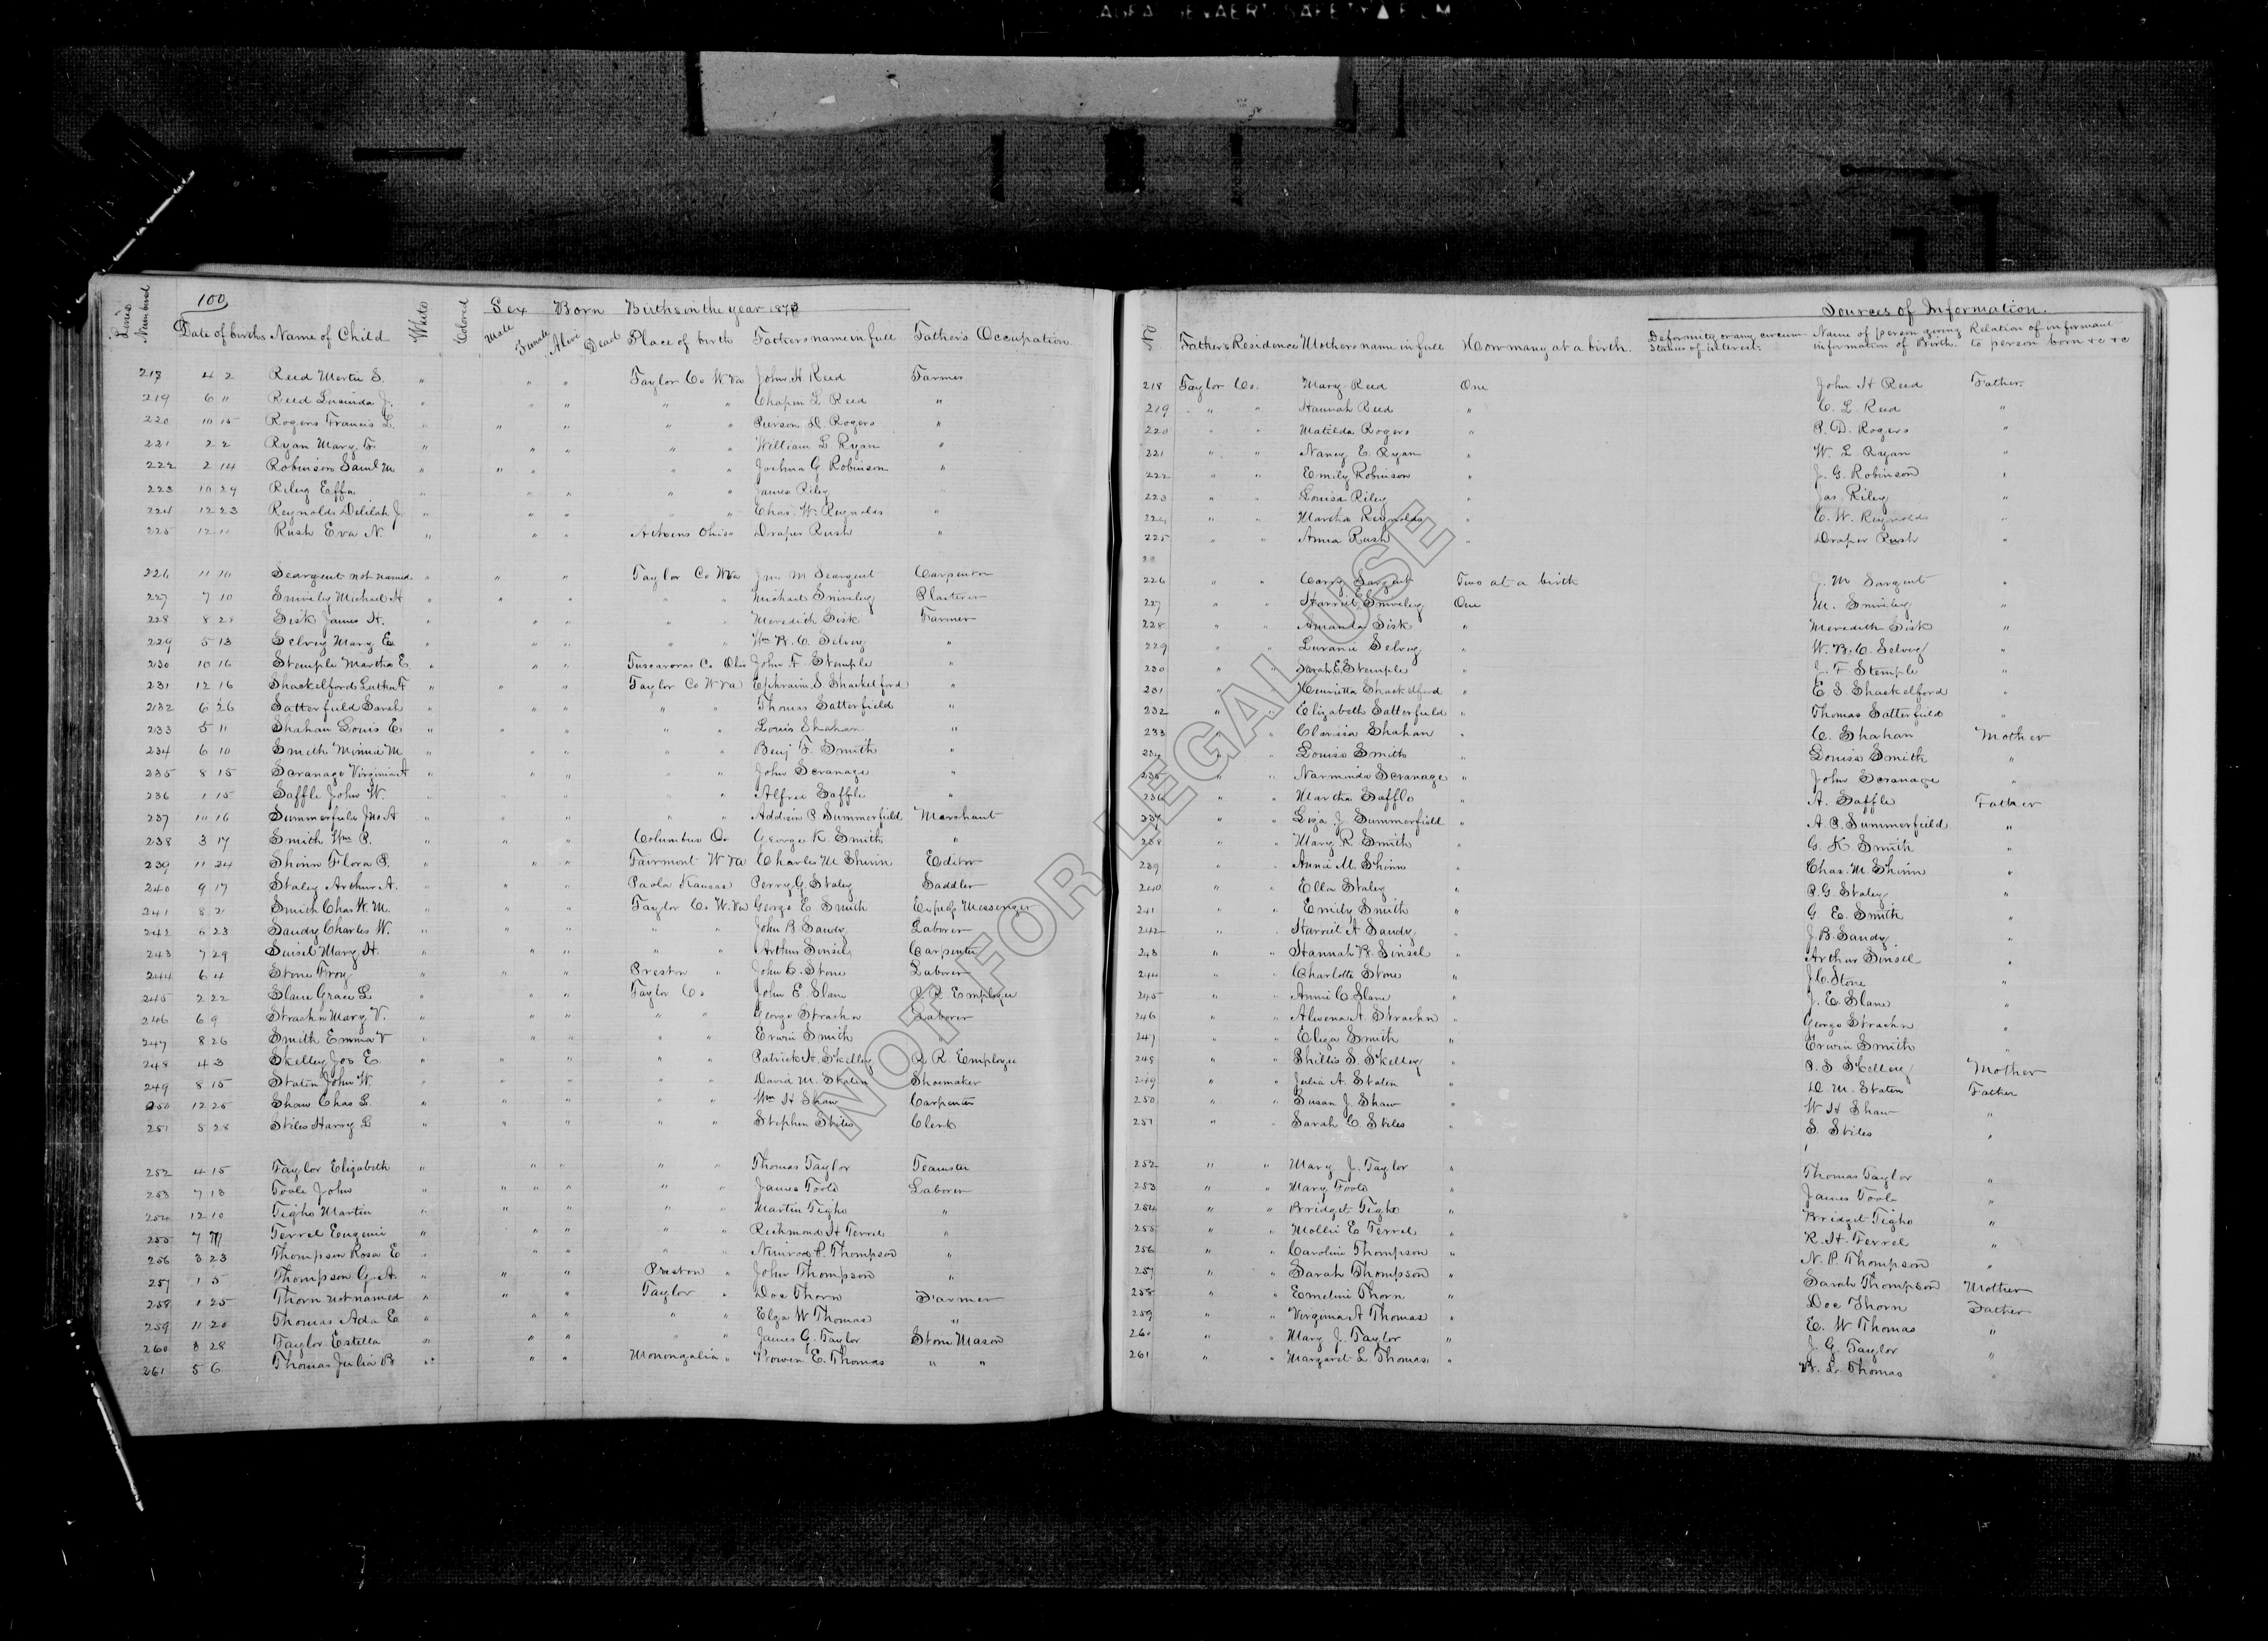 100
Lines Numbered
Date of births Name of Child White Colored Sex Male Female Born Alive Dead Births in the year 1873 Place of birth Fathers name in full Father's Occupation
218 4 2 Reed Mertie S. " " " Taylor Co W Va John H Reed Farmer
219 6 11 Reed Lucinda J. " " " " " Chapin L Reed "
220 10 15 Rogers Francis L. " " " " " Pierson D Rogers "
221 2 2 Ryan Mary F. " " " " " William L Ryan "
222 2 14 Robinson Saml M " " " " " Joshua G Robinson "
223 10 29 Riley Effa " " " " " James Riley "
224 12 23 Reynolds Delilah J. " " " " " Chas. W. Reynolds "
225 12 11 Rush Eva N. " " " Athens Ohio Draper Rush "
226 11 10 Seargent not named " " " Taylor Co W Va Jno. M Seargent Carpenter
227 7 10 Smiveley Michael H " " " " " Michael Smiveley Plasterer
228 8 28 Sisk James H. " " " " " Meredith Sisk Farmer
229 5 13 Selvey Mary E. " " " " " Wm B. C. Selvey "
230 10 16 Stemple Martha E. " " " Tuscaroras Co Ohio John F Stemple "
231 12 16 Shackelford Luther F " " " Taylor Co W Va Ephraim S Shackelford "
232 6 26 Satterfield Sarah " " " " " Thomas Satterfield "
233 5 11 Shahan Louis E " " " " " Louis Shahan "
234 6 10 Smith Minnie M " " " " " Benj F. Smith "
235 8 15 Scranage Virginia A " " " " " John Scranage "
236 1 15 Saffle John W. " " " " " Alfred Saffle "
237 10 16 Summerfield Jno A " " " " " Addison P Summerfield Merchant
238 3 17 Smith Wm P. " " " Columbus O. George K Smith "
239 11 24 Shinn Flora P. " " " Fairmont W Va Charles M Shinn Editor
240 9 17 Staley Arthur A. " " " Paola Kansas Perry G. Staley Saddler
241 8 21 Smith Chas W. M. " " " Taylor Co W. Va George E Smith Express Messenger
242 6 23 Sandy Charles W. " " " " " John B Sandy Laborer
243 7 29 Sinsel Mary H. " " " " " Arthur Sinsel Carpenter
244 6 4 Stone Troy " " " Preston " John C. Stone Laborer
245 2 22 Slane Grace L " " " Taylor Co John E Slane R R Employee
246 6 9 Strachn Mary V. " " " " " George Strachn Laborer
247 8 26 Smith Emma V " " " " " Erwin Smith "
248 4 3 Skelley Jos E. " " " " " Patrick H. Skelley R R Employee
249 8 15 Staten John W. " " " " " David M. Staten Shoemaker
250 12 25 Shaw Chas L. " " " " " Wm H Shaw Carpenter
251 5 28 Stiles Harry L " " " " " Stephen Stiles Clerk
252 4 15 Taylor Elizabeth " " " " " Thomas Taylor Teamster
253 7 13 Toole John " " " " " " James Toole Laborer
254 12 10 Tigho Martin " " " " " Martin Tigho "
255 7 Terrel Eugenie " " " " " Richmond H Terrel "
256 3 23 Thompson Rosa E " " " " " Nimrod P. Thompson "
257 1 5 Thompson G. A. " " " Preston " John Thompson "
258 1 25 Thorn not named " " " Taylor " Doc Thorn Farmer
259 11 20 Thomas Ada E " " " " " Elza W Thomas "
260 3 28 Taylor Estella " " " " " James G. Taylor Stone Mason
261 5 6 Thomas Julia B " " " Monongalia " Bowen E. Thomas " "
Sources of Information.
No Father's Residence Mothers name in full How many at a birth. Deformity or any circumstances of interest. Name of person giving information of Birth. Relation of informant to person born &c &c
218 Taylor Co. Mary Reed One John H Reed Father.
219 " " Hannah Reed " C. L. Reed "
220 " " Matilda Rogers " P. D. Rogers "
221 " " Nancy E. Ryan " W. L Ryan "
222 " " Emily Robinson " J. G. Robinson "
223 " " Louisa Riley " Jas. Riley "
224 " " Martha Reynolds " C. W. Reynolds "
225 " " Anna Rush " Draper Rush "
226 " " Carry Sargent Two at a birth J. M Sargent "
227 " " Harriet Smiveley One M. Smiveley "
228 " " Amanda Sisk " Meredith Sisk "
229 " " Luranie Selvey " W. B. C. Selvey "
230 " " Sarah E Stemple " J. F Stemple "
231 " " Henrietta Shackelford " E S. Shackelford "
232 " " Elizabeth Satterfield " Thomas Satterfield "
233 " Clarissa Shahan " C. Shahan Mother
234 " " Louisa Smith " Louisa Smith "
235 " " Narminda Scranage " John Scranage "
236 " " Martha Saffle " A. Saffle Father
237 " " Liza J Summerfield " A. P. Summerfield "
238 " " Mary R Smith " G. K Smith "
239 " " Annie M. Shinn " Chas. M. Shinn "
240 " " Ella Staley " P. G. Staley "
241 " " Emily Smith " G. E. Smith "
242 " " Harriet A Sandy " J. B. Sandy "
243 " " Hannah B. Sinsel " Arthur Sinsel "
244 " " Charlotte Stone " J. C. Stone "
245 " " Annie C Slane " J. E. Slane "
246 " " Alwena A. Strachn " George Strachn "
247 " " Eliza Smith " Erwin Smith "
248 " " Phillis S. Skelley " P. S Skelley Mother
249 " " Julia A. Staten " D. M. Staten Father
250 " " Susan J. Shaw " W H Shaw "
251 " " Sarah C Stiles " S. Stiles "
252 " " Mary J. Taylor " Thomas Taylor "
253 " " Mary Toole " James Toole "
254 " " Bridget Tigho " Bridget Tigho "
255 " " Mollie E Terrel " R. H. Terrel "
256 " " Caroline Thompson " N. P. Thompson "
257 " " Sarah Thompson " Sarah Thompson Mother
258 " " Emeline Thorn " Doc Thorn Father
259 " " Virginia A Thomas " E. W Thomas "
260 " " Mary J. Taylor " J. G. Taylor "
261 " " Margaret L Thomas " B. L. Thomas "
NOT FOR LEGAL USE